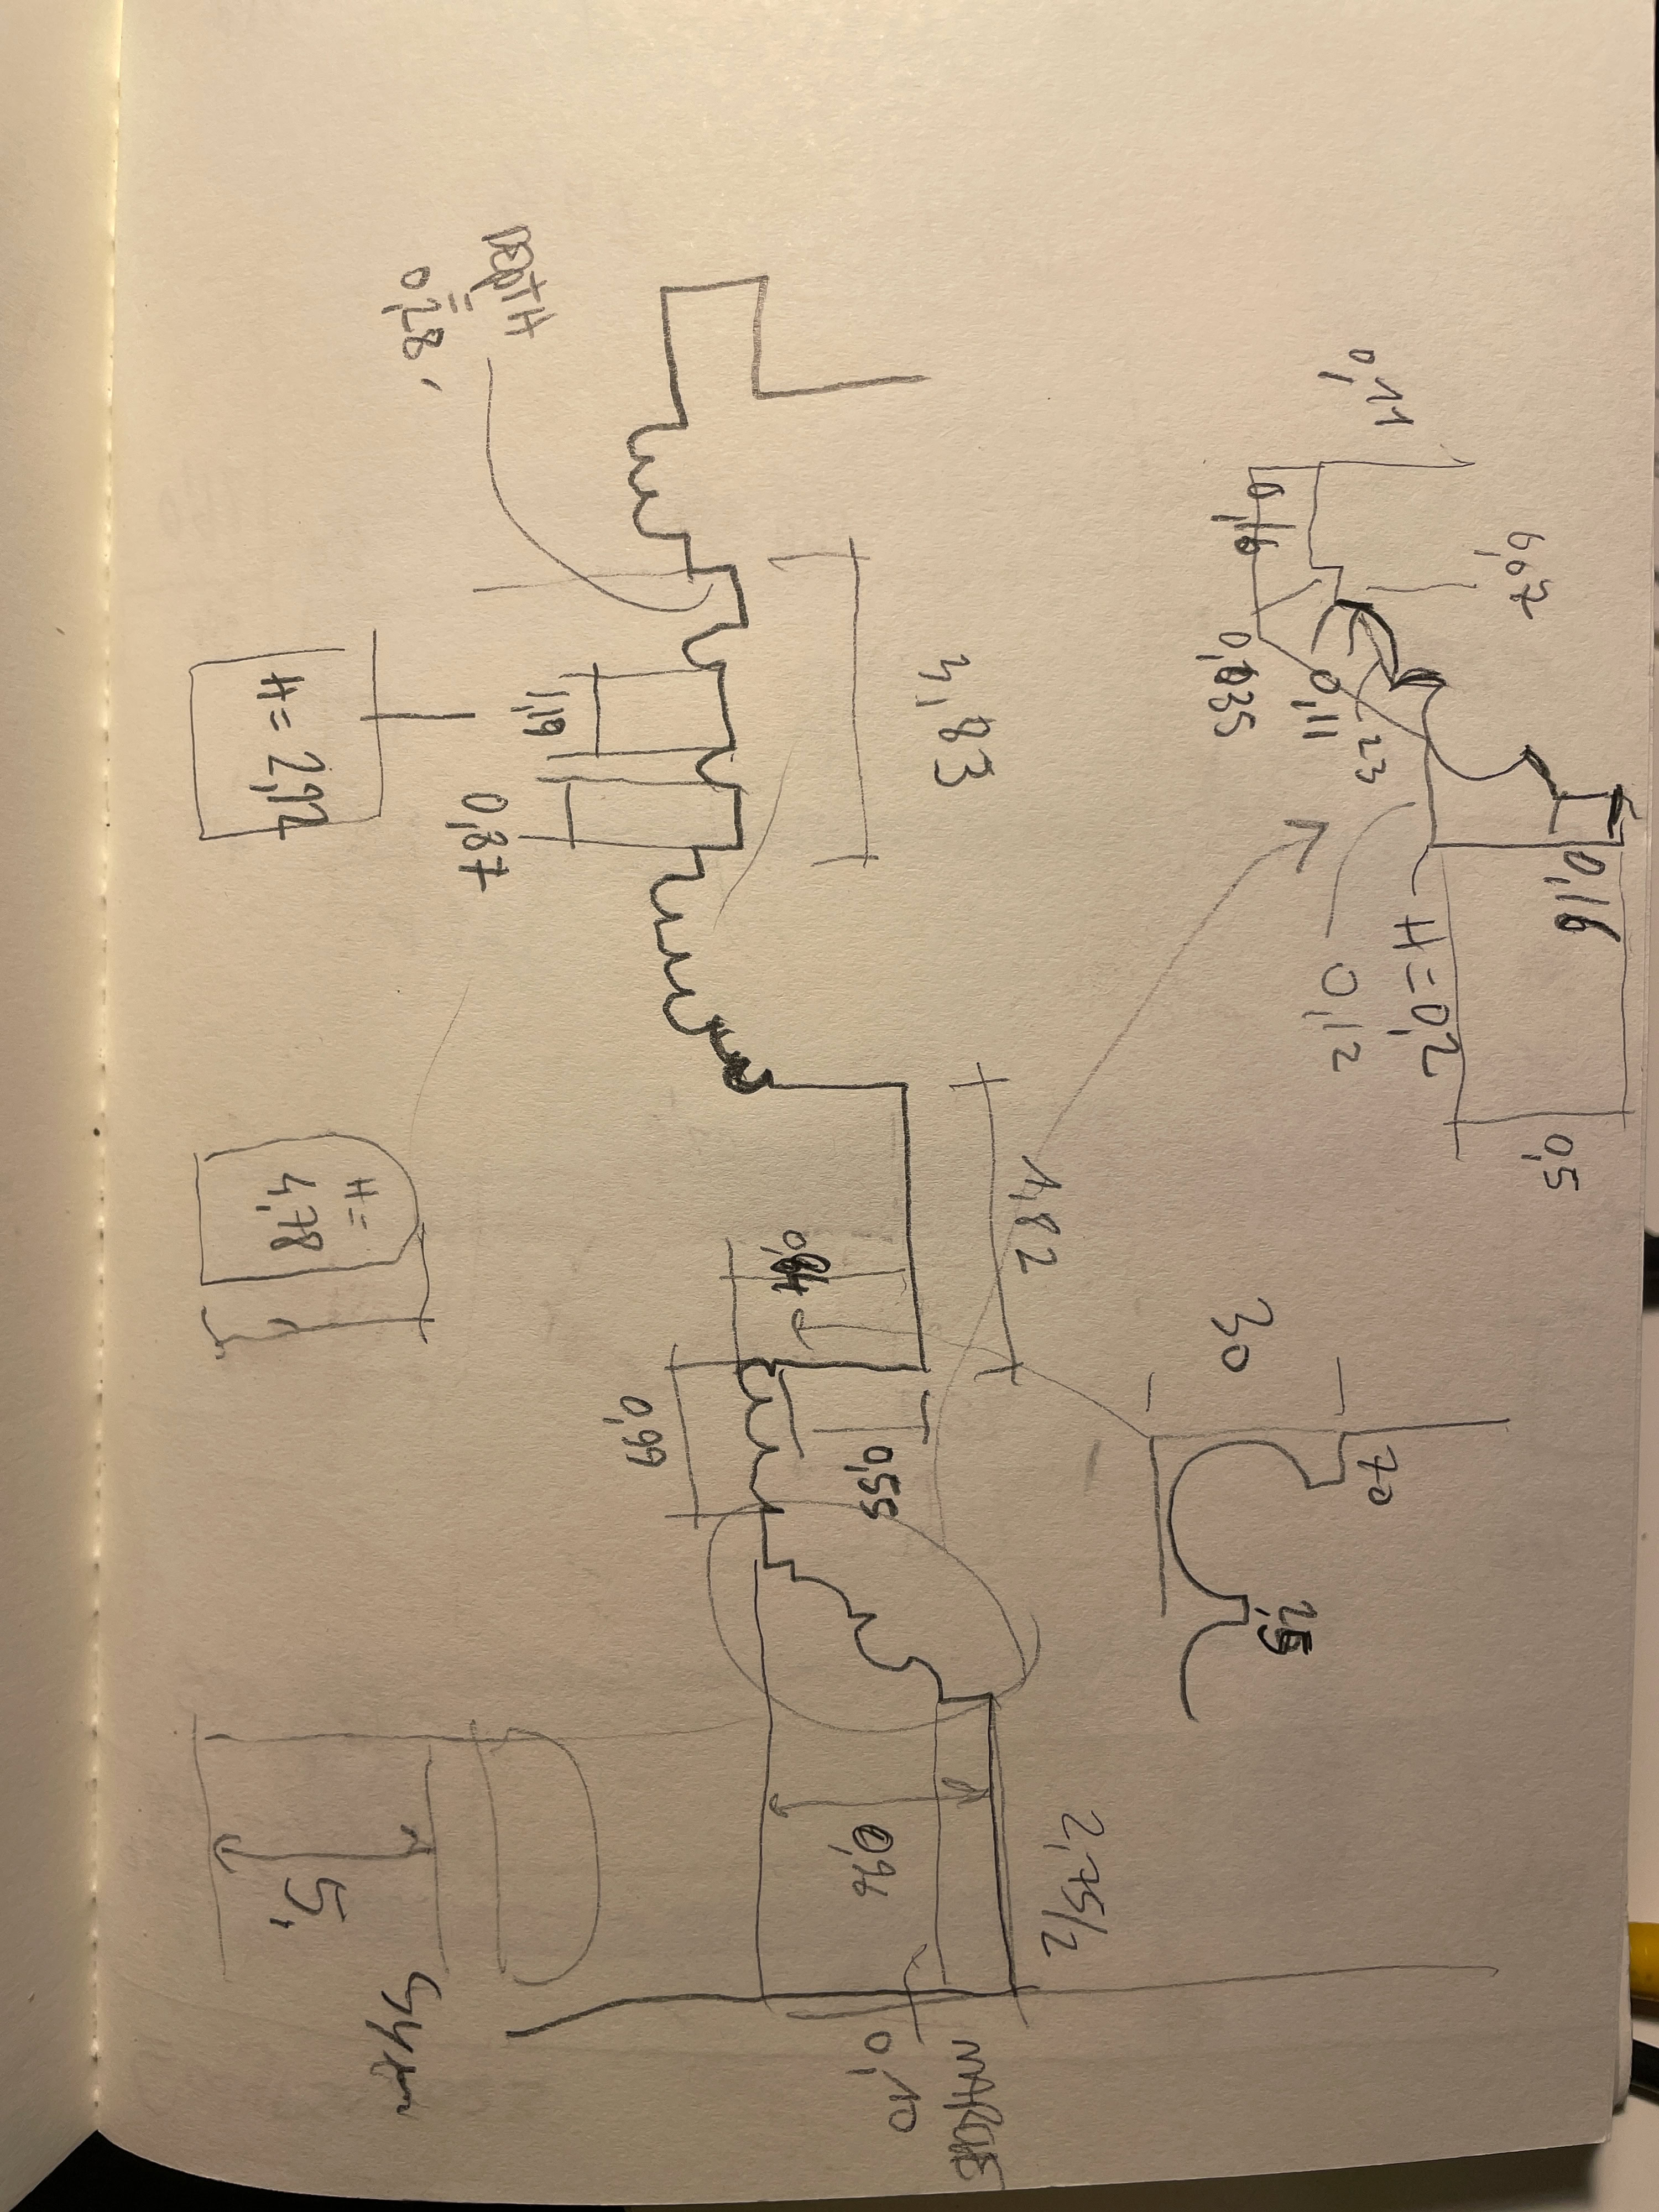 DEPTH
=
0,28
3,83
1,19
0,87
H = 2,92
0,11
0,16
0,035
0,11
23
0,12
H = 0,2
0,16
0,5
1,82
0,55
0,99
H =
4,78
30
70
2,5
2,75/2
0,96
0,10
5,